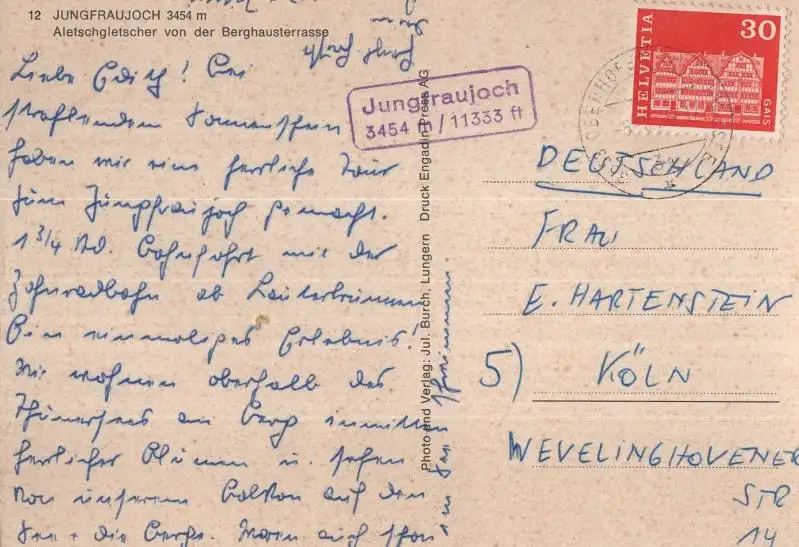 12 JUNGFRAUJOCH 3454 m
Aletschgletscher von der Berghausterrasse
Liebe Edith! Bei
strahlendem Sonnenschein
haben wir eine herrliche Tour
zum Jungfraujoch gemacht.
1 3/4 Std. Bahnfahrt mit der
Zahnradbahn ab Lauterbrunnen
Ein einmaliges Erlebnis!
Wir wohnen oberhalb des
Thunersees am Berg inmitten
herrlicher Blumen u. sehen
von unserem Balkon auf den
See + die Berge. Waren auch schon
im See schwimmen.
Jungfraujoch
3454 m / 11333 ft
Photo und Verlag: Jul. Burch, Lungern Druck Engadin Press AG
HELVETIA
30
GAIS
OBERHOFEN
DEUTSCHLAND
FRAU
E. HARTENSTEIN
5) KÖLN
WEVELINGHOVENER
STR
14